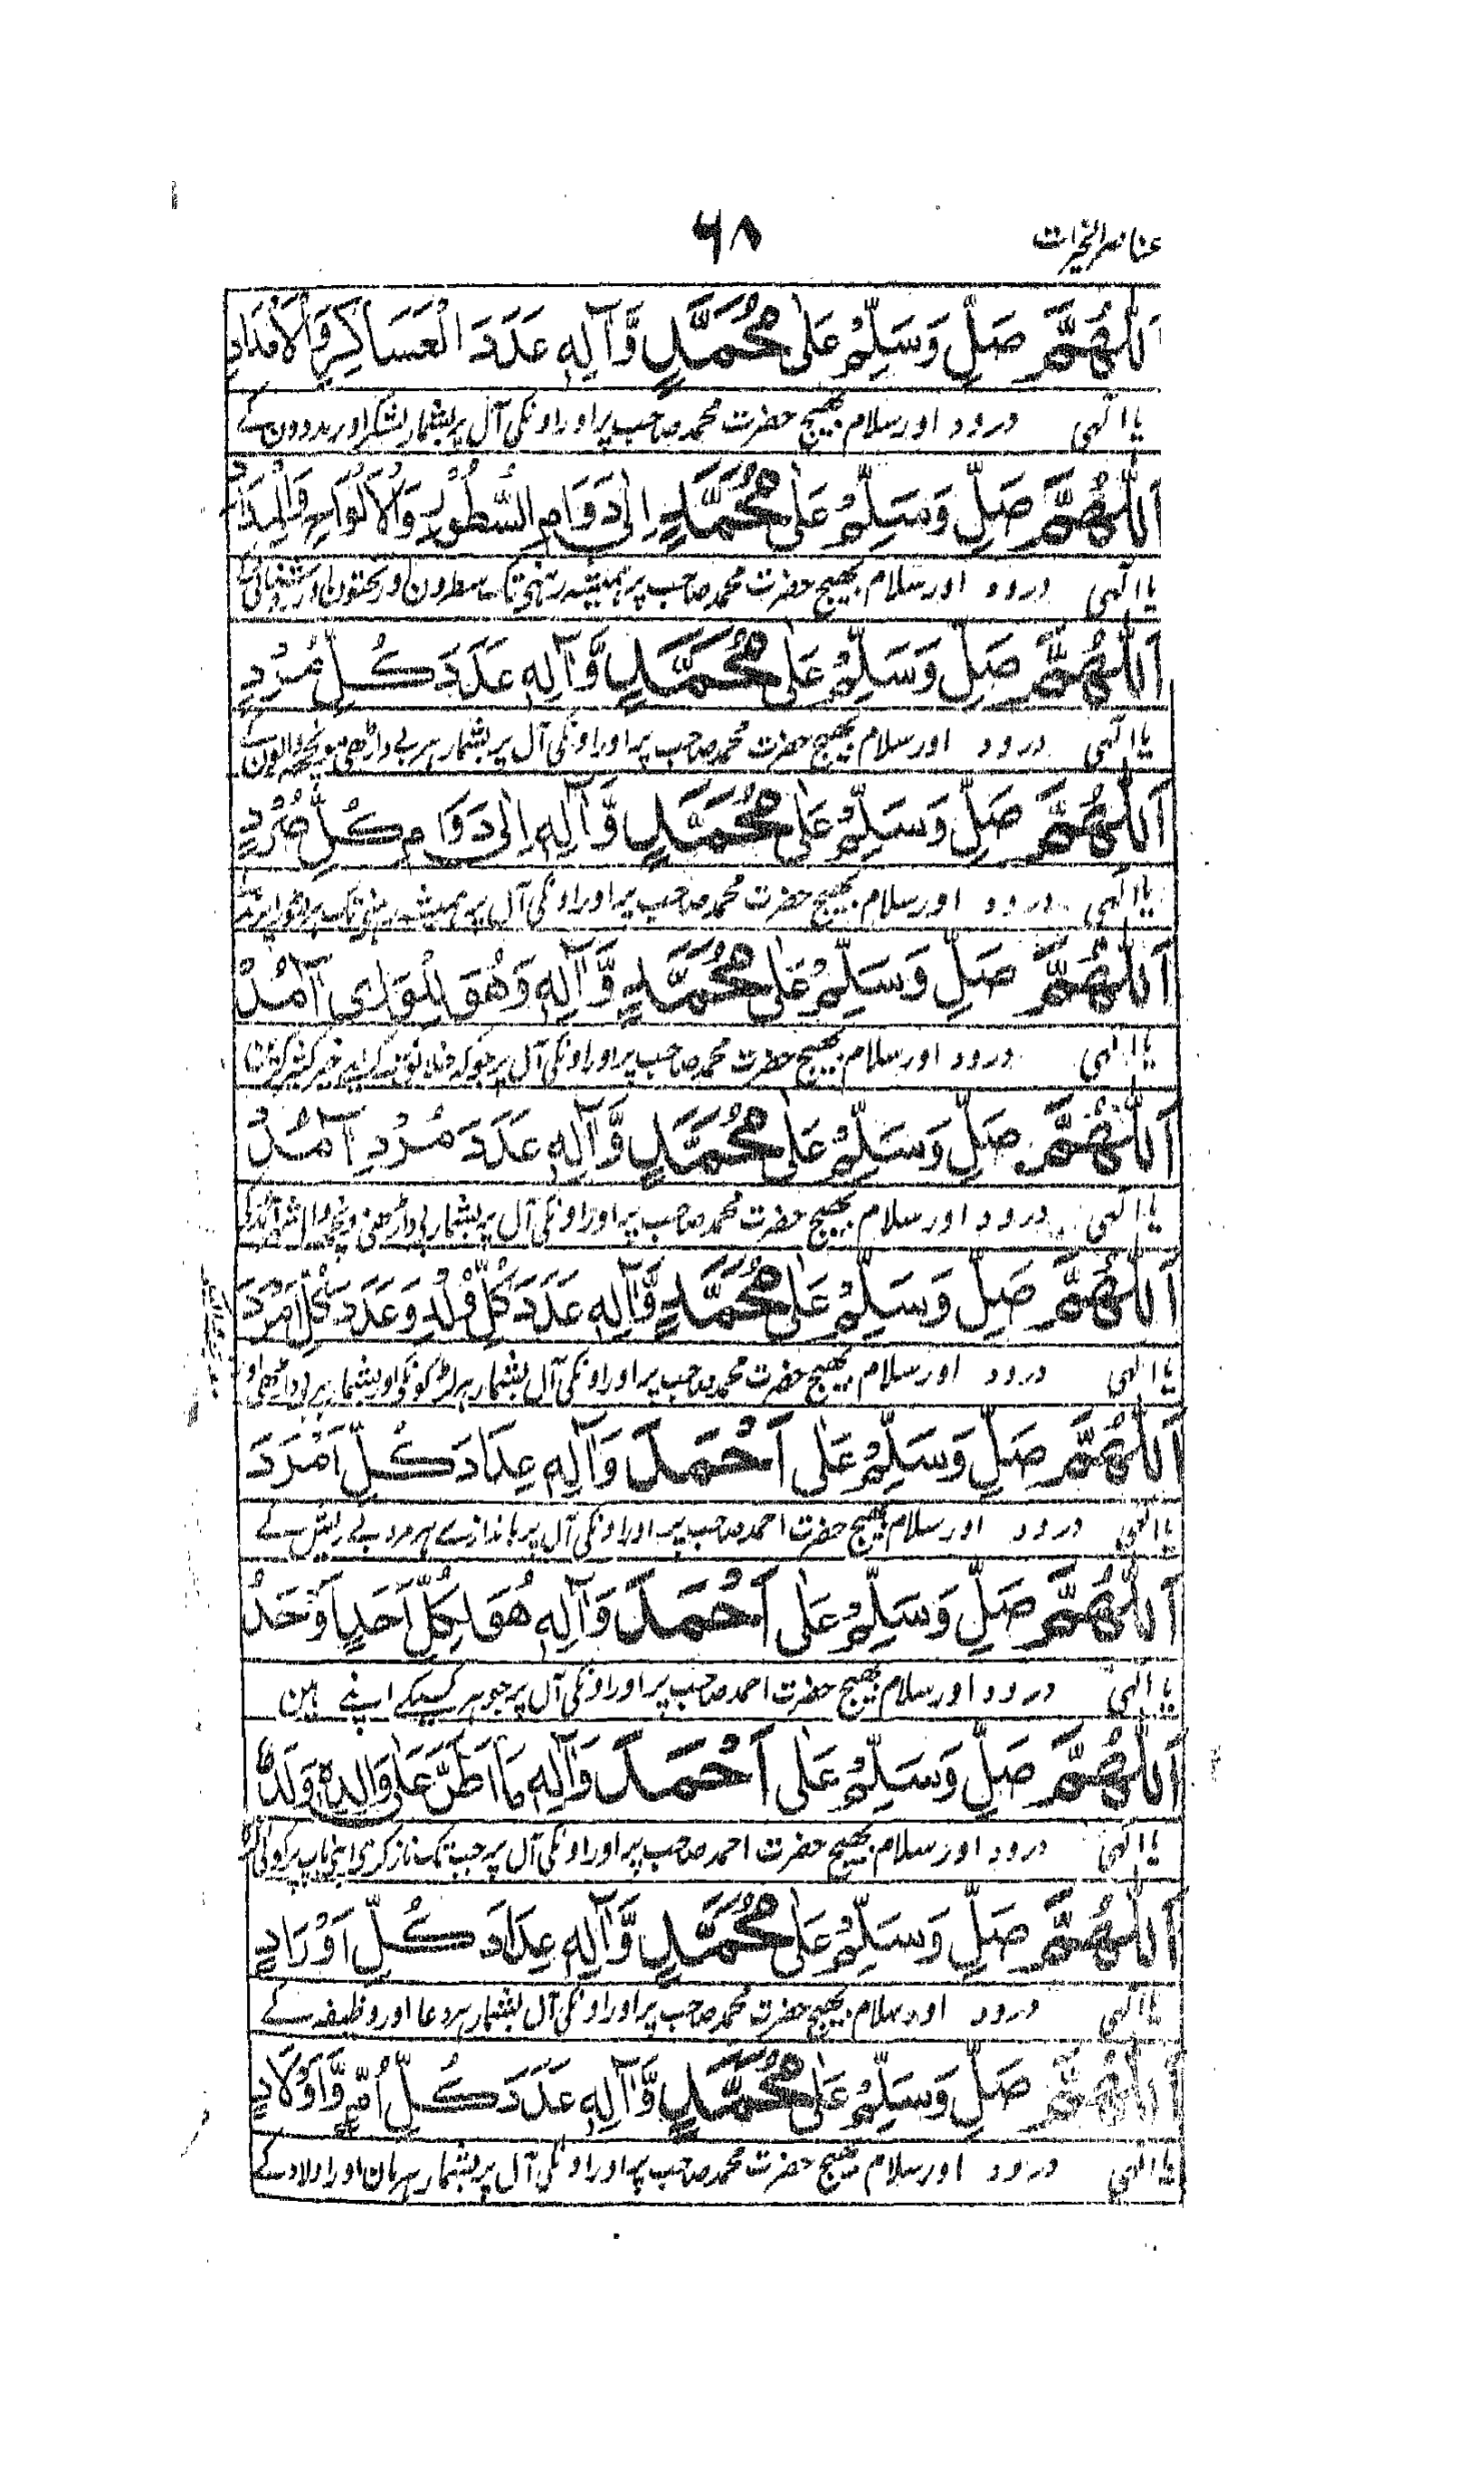 عناصر الخیرات
۶۸
اَللّٰهُمَّ صَلِّ وَسَلِّمْ عَلٰی مُحَمَّدٍ وَّاٰلِهٖ عَدَدَ الْعَسَاكِرِ وَالْاَمْدَادِ
یا الٰہی درود اور سلام بھیج حضرت محمد صاحب پر اور اونکی آل پر بشمار لشکر اور مددون کے
اَللّٰهُمَّ صَلِّ وَسَلِّمْ عَلٰی مُحَمَّدٍ اِلٰی دَوَامِ السُّطُوْرِ وَالْاَلْوَاحِ وَالْمِدَادِ
یا الٰہی درود اور سلام بھیج حضرت محمد صاحب پر ہمیشہ رہنی تک سطرون اور تختون اور
اَللّٰهُمَّ صَلِّ وَسَلِّمْ عَلٰی مُحَمَّدٍ وَّاٰلِهٖ عَدَدَ كُلِّ مُرْدٍ
یا الٰہی درود اور سلام بھیج حضرت محمد صاحب پر اور اونکی آل پر بشمار ہر بی داڑھی مونچھہ والون کے
اَللّٰهُمَّ صَلِّ وَسَلِّمْ عَلٰی مُحَمَّدٍ وَّاٰلِهٖ اِلٰی دَوَامِ كُلِّ
یا الٰہی درود اور سلام بھیج حضرت محمد صاحب پر اور اونکی آل پر ہمیشہ رہنی تک
اَللّٰهُمَّ صَلِّ وَسَلِّمْ عَلٰی مُحَمَّدٍ وَّاٰلِهٖ وَهُوَ لِلْوَرٰی
یا الٰہی درود اور سلام بھیج حضرت محمد صاحب پر اور اونکی آل پر جو کہ
اَللّٰهُمَّ صَلِّ وَسَلِّمْ عَلٰی مُحَمَّدٍ وَّاٰلِهٖ عَدَدَ مُرْدٍ
یا الٰہی درود اور سلام بھیج حضرت محمد صاحب پر اور اونکی آل پر بشمار بی داڑھی
اَللّٰهُمَّ صَلِّ وَسَلِّمْ عَلٰی مُحَمَّدٍ وَّاٰلِهٖ عَدَدَ كُلِّ وُلْدٍ وَعَدَدَ كُلِّ اَمْرَدَ
یا الٰہی درود اور سلام بھیج حضرت محمد صاحب پر اور اونکی آل بشمار ہر لڑکونکی اور بشمار ہر بی داڑھی
اَللّٰهُمَّ صَلِّ وَسَلِّمْ عَلٰی اَحْمَدَ وَاٰلِهٖ عِدَادَ كُلِّ اَمْرَدَ
یا الٰہی درود اور سلام بھیج حضرت احمد صاحب پر اور اونکی آل پر باندازے ہر مرد بے ریش کے
اَللّٰهُمَّ صَلِّ وَسَلِّمْ عَلٰی اَحْمَدَ وَاٰلِهٖ هُوَ لِكُلِّ اَحَدٍ
یا الٰہی درود اور سلام بھیج حضرت احمد صاحب پر اور اونکی آل پر جو ہر کسیکے اپنے ہین
اَللّٰهُمَّ صَلِّ وَسَلِّمْ عَلٰی اَحْمَدَ وَاٰلِهٖ مَا عَلٰی وَالِدِهٖ وَلَدٌ
یا الٰہی درود اور سلام بھیج حضرت احمد صاحب پر اور اونکی آل پر جب تک ناز کری اپنی باپ پر کوئی
اَللّٰهُمَّ صَلِّ وَسَلِّمْ عَلٰی مُحَمَّدٍ وَّاٰلِهٖ عِدَادَ كُلِّ اَوْرَادٍ
یا الٰہی درود اور سلام بھیج حضرت محمد صاحب پر اور اونکی آل بشمار ہر دعا اور وظیفہ کے
اَللّٰهُمَّ صَلِّ وَسَلِّمْ عَلٰی مُحَمَّدٍ وَّاٰلِهٖ عَدَدَ كُلِّ اُمٍّ وَّاَوْلَادٍ
یا الٰہی درود اور سلام بھیج حضرت محمد صاحب پر اور اونکی آل پر بشمار ہر مان اور اولاد کے